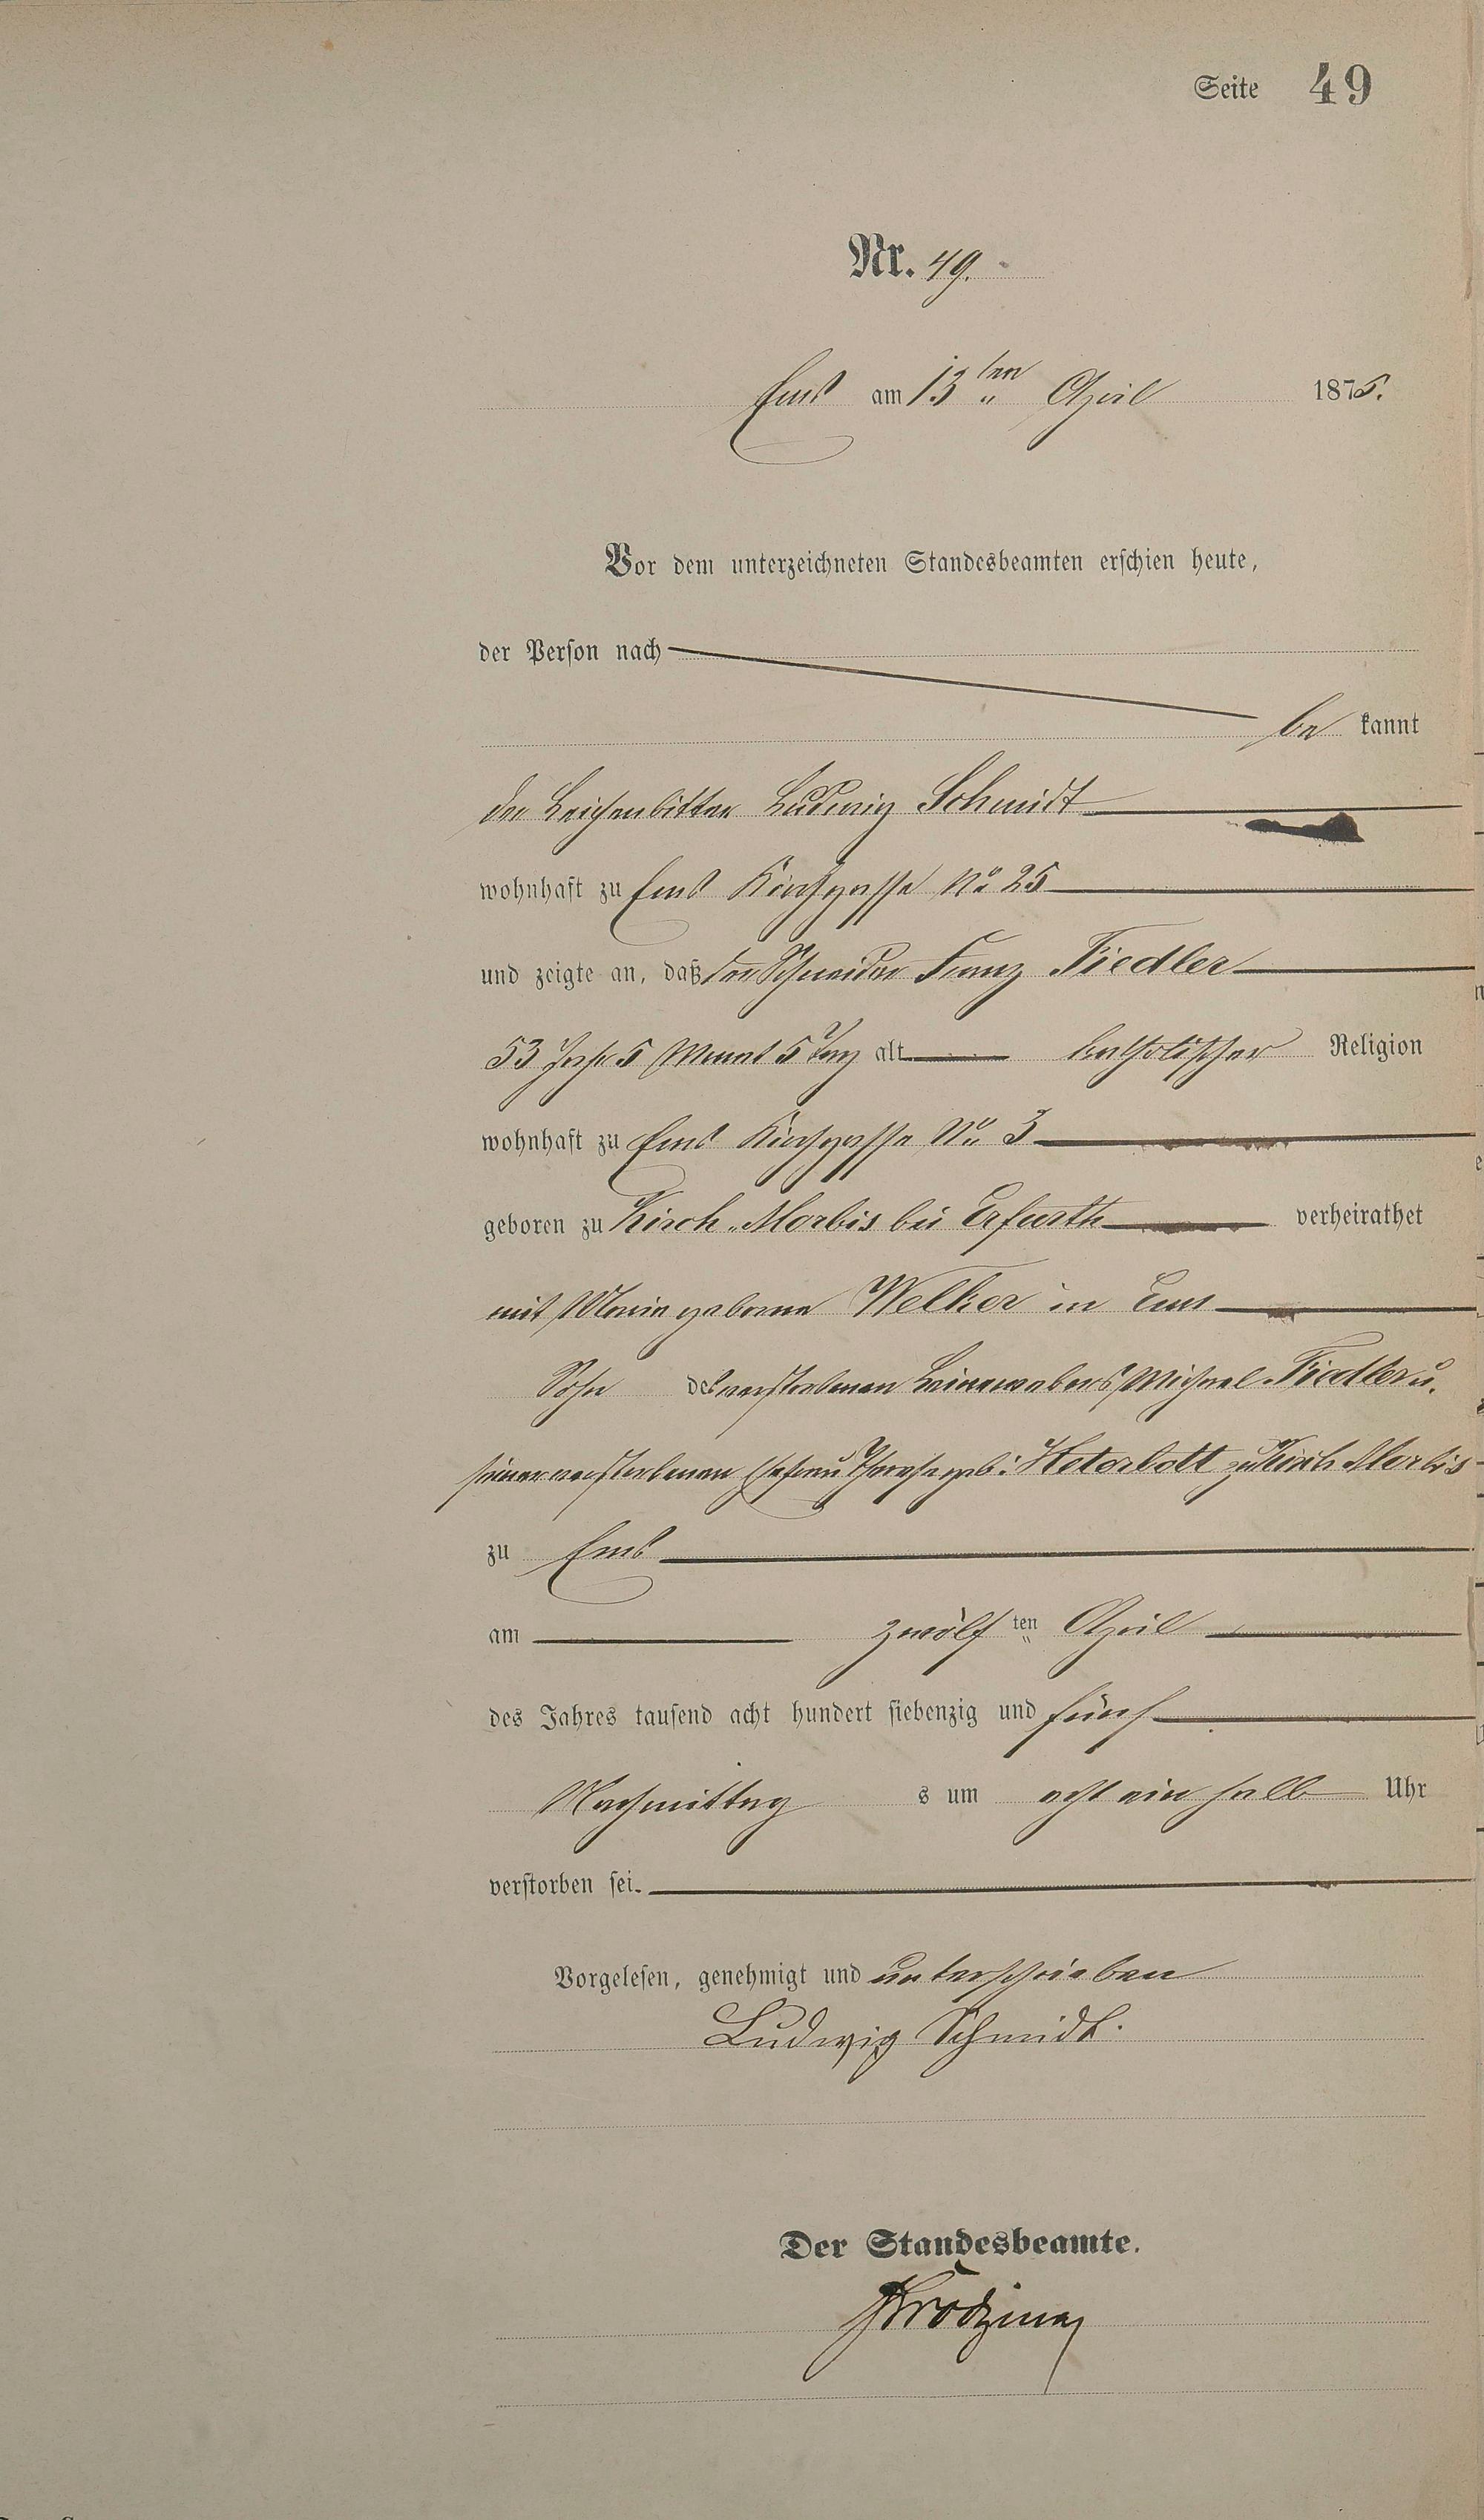 Seite 49
Nr. 49.
Ems am 13ten April 1875.
Vor dem unterzeichneten Standesbeamten erschien heute,
der Person nach
be kannt
der Leichenbitter Ludwig Schmidt
wohnhaft zu Ems Kirchgasse No 25
und zeigte an, daß der Schneider Franz Fiedler
53 Jahr 5 Monat 5 Tag alt katholischer Religion
wohnhaft zu Ems Kirchgasse No 3
geboren zu Kirch-Worbis bei Erfurth verheirathet
mit Maria geborne Welker in Ems
Sohn des verstorbenen Leinewebers Michael Fiedler u.
seiner verstorbenen Ehefrau Therese geb: Heterbott zu Kirch Worbis
zu Ems
am zwölf ten April
des Jahres tausend acht hundert siebenzig und fünf
Nachmittag s um acht ein halb Uhr
verstorben sei.
Vorgelesen, genehmigt und unterschrieben
Ludwig Schmidt.
Der Standesbeamte.